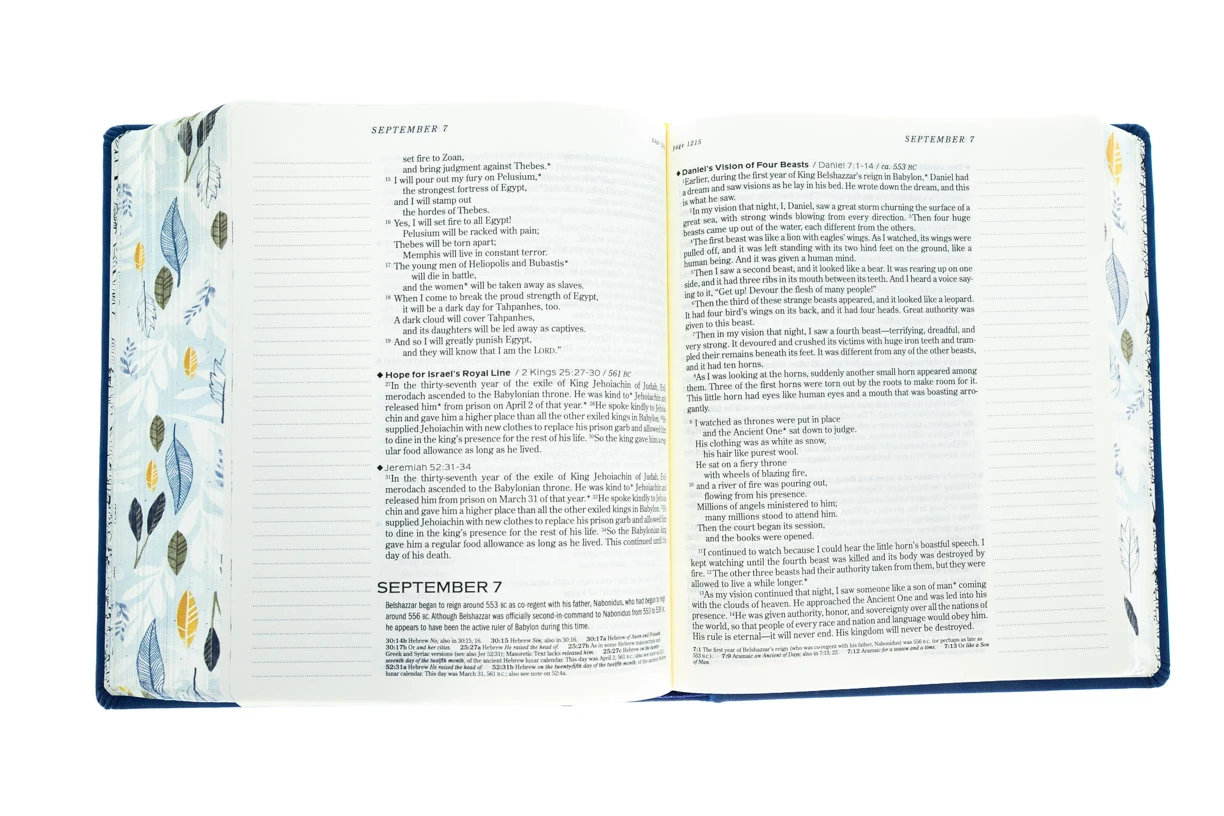 SEPTEMBER 7
set fire to Zoan,
and bring judgment against Thebes.*
15 I will pour out my fury on Pelusium,*
the strongest fortress of Egypt,
and I will stamp out
the hordes of Thebes.
16 Yes, I will set fire to all Egypt!
Pelusium will be racked with pain;
Thebes will be torn apart;
Memphis will live in constant terror.
17 The young men of Heliopolis and Bubastis*
will die in battle,
and the women* will be taken away as slaves.
18 When I come to break the proud strength of Egypt,
it will be a dark day for Tahpanhes, too.
A dark cloud will cover Tahpanhes,
and its daughters will be led away as captives.
19 And so I will greatly punish Egypt,
and they will know that I am the LORD.”
◆ Hope for Israel's Royal Line / 2 Kings 25:27-30 / 561 BC
27In the thirty-seventh year of the exile of King Jehoiachin of Judah, Evil-
merodach ascended to the Babylonian throne. He was kind to* Jehoiachin and
released him* from prison on April 2 of that year.* 28He spoke kindly to Jehoia-
chin and gave him a higher place than all the other exiled kings in Babylon. 29He
supplied Jehoiachin with new clothes to replace his prison garb and allowed him
to dine in the king's presence for the rest of his life. 30So the king gave him a reg-
ular food allowance as long as he lived.
◆ Jeremiah 52:31-34
31In the thirty-seventh year of the exile of King Jehoiachin of Judah, Evil-
merodach ascended to the Babylonian throne. He was kind to* Jehoiachin and
released him from prison on March 31 of that year.* 32He spoke kindly to Jehoia-
chin and gave him a higher place than all the other exiled kings in Babylon. 33He
supplied Jehoiachin with new clothes to replace his prison garb and allowed him
to dine in the king's presence for the rest of his life. 34So the Babylonian king
gave him a regular food allowance as long as he lived. This continued until the
day of his death.
SEPTEMBER 7
Belshazzar began to reign around 553 BC as co-regent with his father, Nabonidus, who had begun to reign
around 556 BC. Although Belshazzar was officially second-in-command to Nabonidus from 553 to 539 BC,
he appears to have been the active ruler of Babylon during this time.
30:14b Hebrew No; also in 30:15, 16. 30:15 Hebrew Sin; also in 30:16. 30:17a Hebrew of Awen and Pi-beseth.
30:17b Or and her cities. 25:27a Hebrew He raised the head of. 25:27b As in some Hebrew manuscripts and
Greek and Syriac versions (see also Jer 52:31); Masoretic Text lacks released him. Hebrew on the twenty-
seventh day of the twelfth month, of the ancient Hebrew lunar calendar. This day was April 2, 561 B.C.; also see note on
52:31a Hebrew He raised the head of. 52:31b Hebrew on the twenty-fifth day of the twelfth month, of the ancient Hebrew
lunar calendar. This day was March 31, 561 B.C.; also see note on 52:4a.
page 1215
SEPTEMBER 7
◆ Daniel's Vision of Four Beasts / Daniel 7:1-14 / ca. 553 BC
1Earlier, during the first year of King Belshazzar's reign in Babylon,* Daniel had
a dream and saw visions as he lay in his bed. He wrote down the dream, and this
is what he saw.
2In my vision that night, I, Daniel, saw a great storm churning the surface of a
great sea, with strong winds blowing from every direction. 3Then four huge
beasts came up out of the water, each different from the others.
4The first beast was like a lion with eagles' wings. As I watched, its wings were
pulled off, and it was left standing with its two hind feet on the ground, like a
human being. And it was given a human mind.
5Then I saw a second beast, and it looked like a bear. It was rearing up on one
side, and it had three ribs in its mouth between its teeth. And I heard a voice say-
ing to it, “Get up! Devour the flesh of many people!”
6Then the third of these strange beasts appeared, and it looked like a leopard.
It had four bird's wings on its back, and it had four heads. Great authority was
given to this beast.
7Then in my vision that night, I saw a fourth beast—terrifying, dreadful, and
very strong. It devoured and crushed its victims with huge iron teeth and tram-
pled their remains beneath its feet. It was different from any of the other beasts,
and it had ten horns.
8As I was looking at the horns, suddenly another small horn appeared among
them. Three of the first horns were torn out by the roots to make room for it.
This little horn had eyes like human eyes and a mouth that was boasting arro-
gantly.
9 I watched as thrones were put in place
and the Ancient One* sat down to judge.
His clothing was as white as snow,
his hair like purest wool.
He sat on a fiery throne
with wheels of blazing fire,
10 and a river of fire was pouring out,
flowing from his presence.
Millions of angels ministered to him;
many millions stood to attend him.
Then the court began its session,
and the books were opened.
11I continued to watch because I could hear the little horn's boastful speech. I
kept watching until the fourth beast was killed and its body was destroyed by
fire. 12The other three beasts had their authority taken from them, but they were
allowed to live a while longer.*
13As my vision continued that night, I saw someone like a son of man* coming
with the clouds of heaven. He approached the Ancient One and was led into his
presence. 14He was given authority, honor, and sovereignty over all the nations of
the world, so that people of every race and nation and language would obey him.
His rule is eternal—it will never end. His kingdom will never be destroyed.
7:1 The first year of Belshazzar's reign (who was co-regent with his father, Nabonidus) was 556 B.C. (or perhaps as late as
553 B.C.). 7:9 Aramaic an Ancient of Days; also in 7:13, 22. 7:12 Aramaic for a season and a time. 7:13 Or like a Son
of Man.